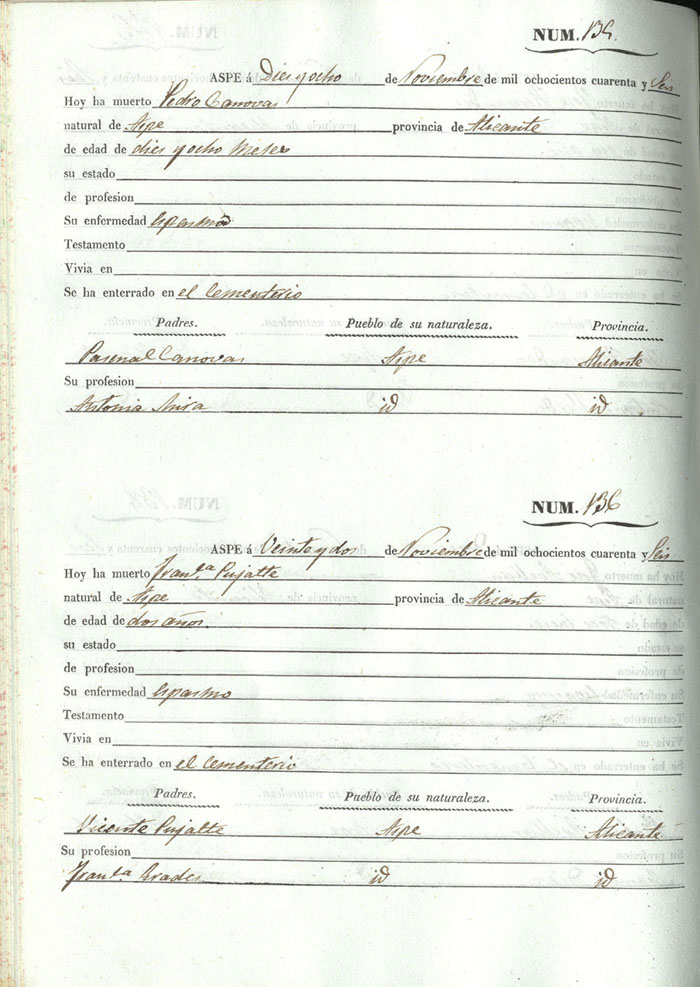 NUM. 135.
ASPE á Dies y ocho de Noviembre de mil ochocientos cuarenta y Seis
Hoy ha muerto Pedro Canovas
natural de Aspe provincia de Alicante
de edad de dies y ocho Meses
su estado
de profesion
Su enfermedad Espasmo
Testamento
Vivia en
Se ha enterrado en el Cementerio
Padres. Pueblo de su naturaleza. Provincia.
Pascual Canovas Aspe Alicante
Su profesion
Antonia Mira id id
NUM. 136
ASPE á Veinte y dos de Noviembre de mil ochocientos cuarenta y Seis
Hoy ha muerto Fran.ca Pujalte
natural de Aspe provincia de Alicante
de edad de dos años.
su estado
de profesion
Su enfermedad Espasmo
Testamento
Vivia en
Se ha enterrado en el Cementerio
Padres. Pueblo de su naturaleza. Provincia.
Vicente Pujalte Aspe Alicante
Su profesion
Fran.ca id id